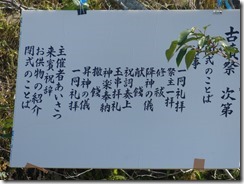 次第
式のことば
一同礼拝
祭主一拝
修祓
降神の儀
献饌
祝詞奏上
玉串拝礼
神楽奉納
撤饌
昇神の儀
一同礼拝
主催者あいさつ
来賓祝辞
お供物の紹介
閉式のことば